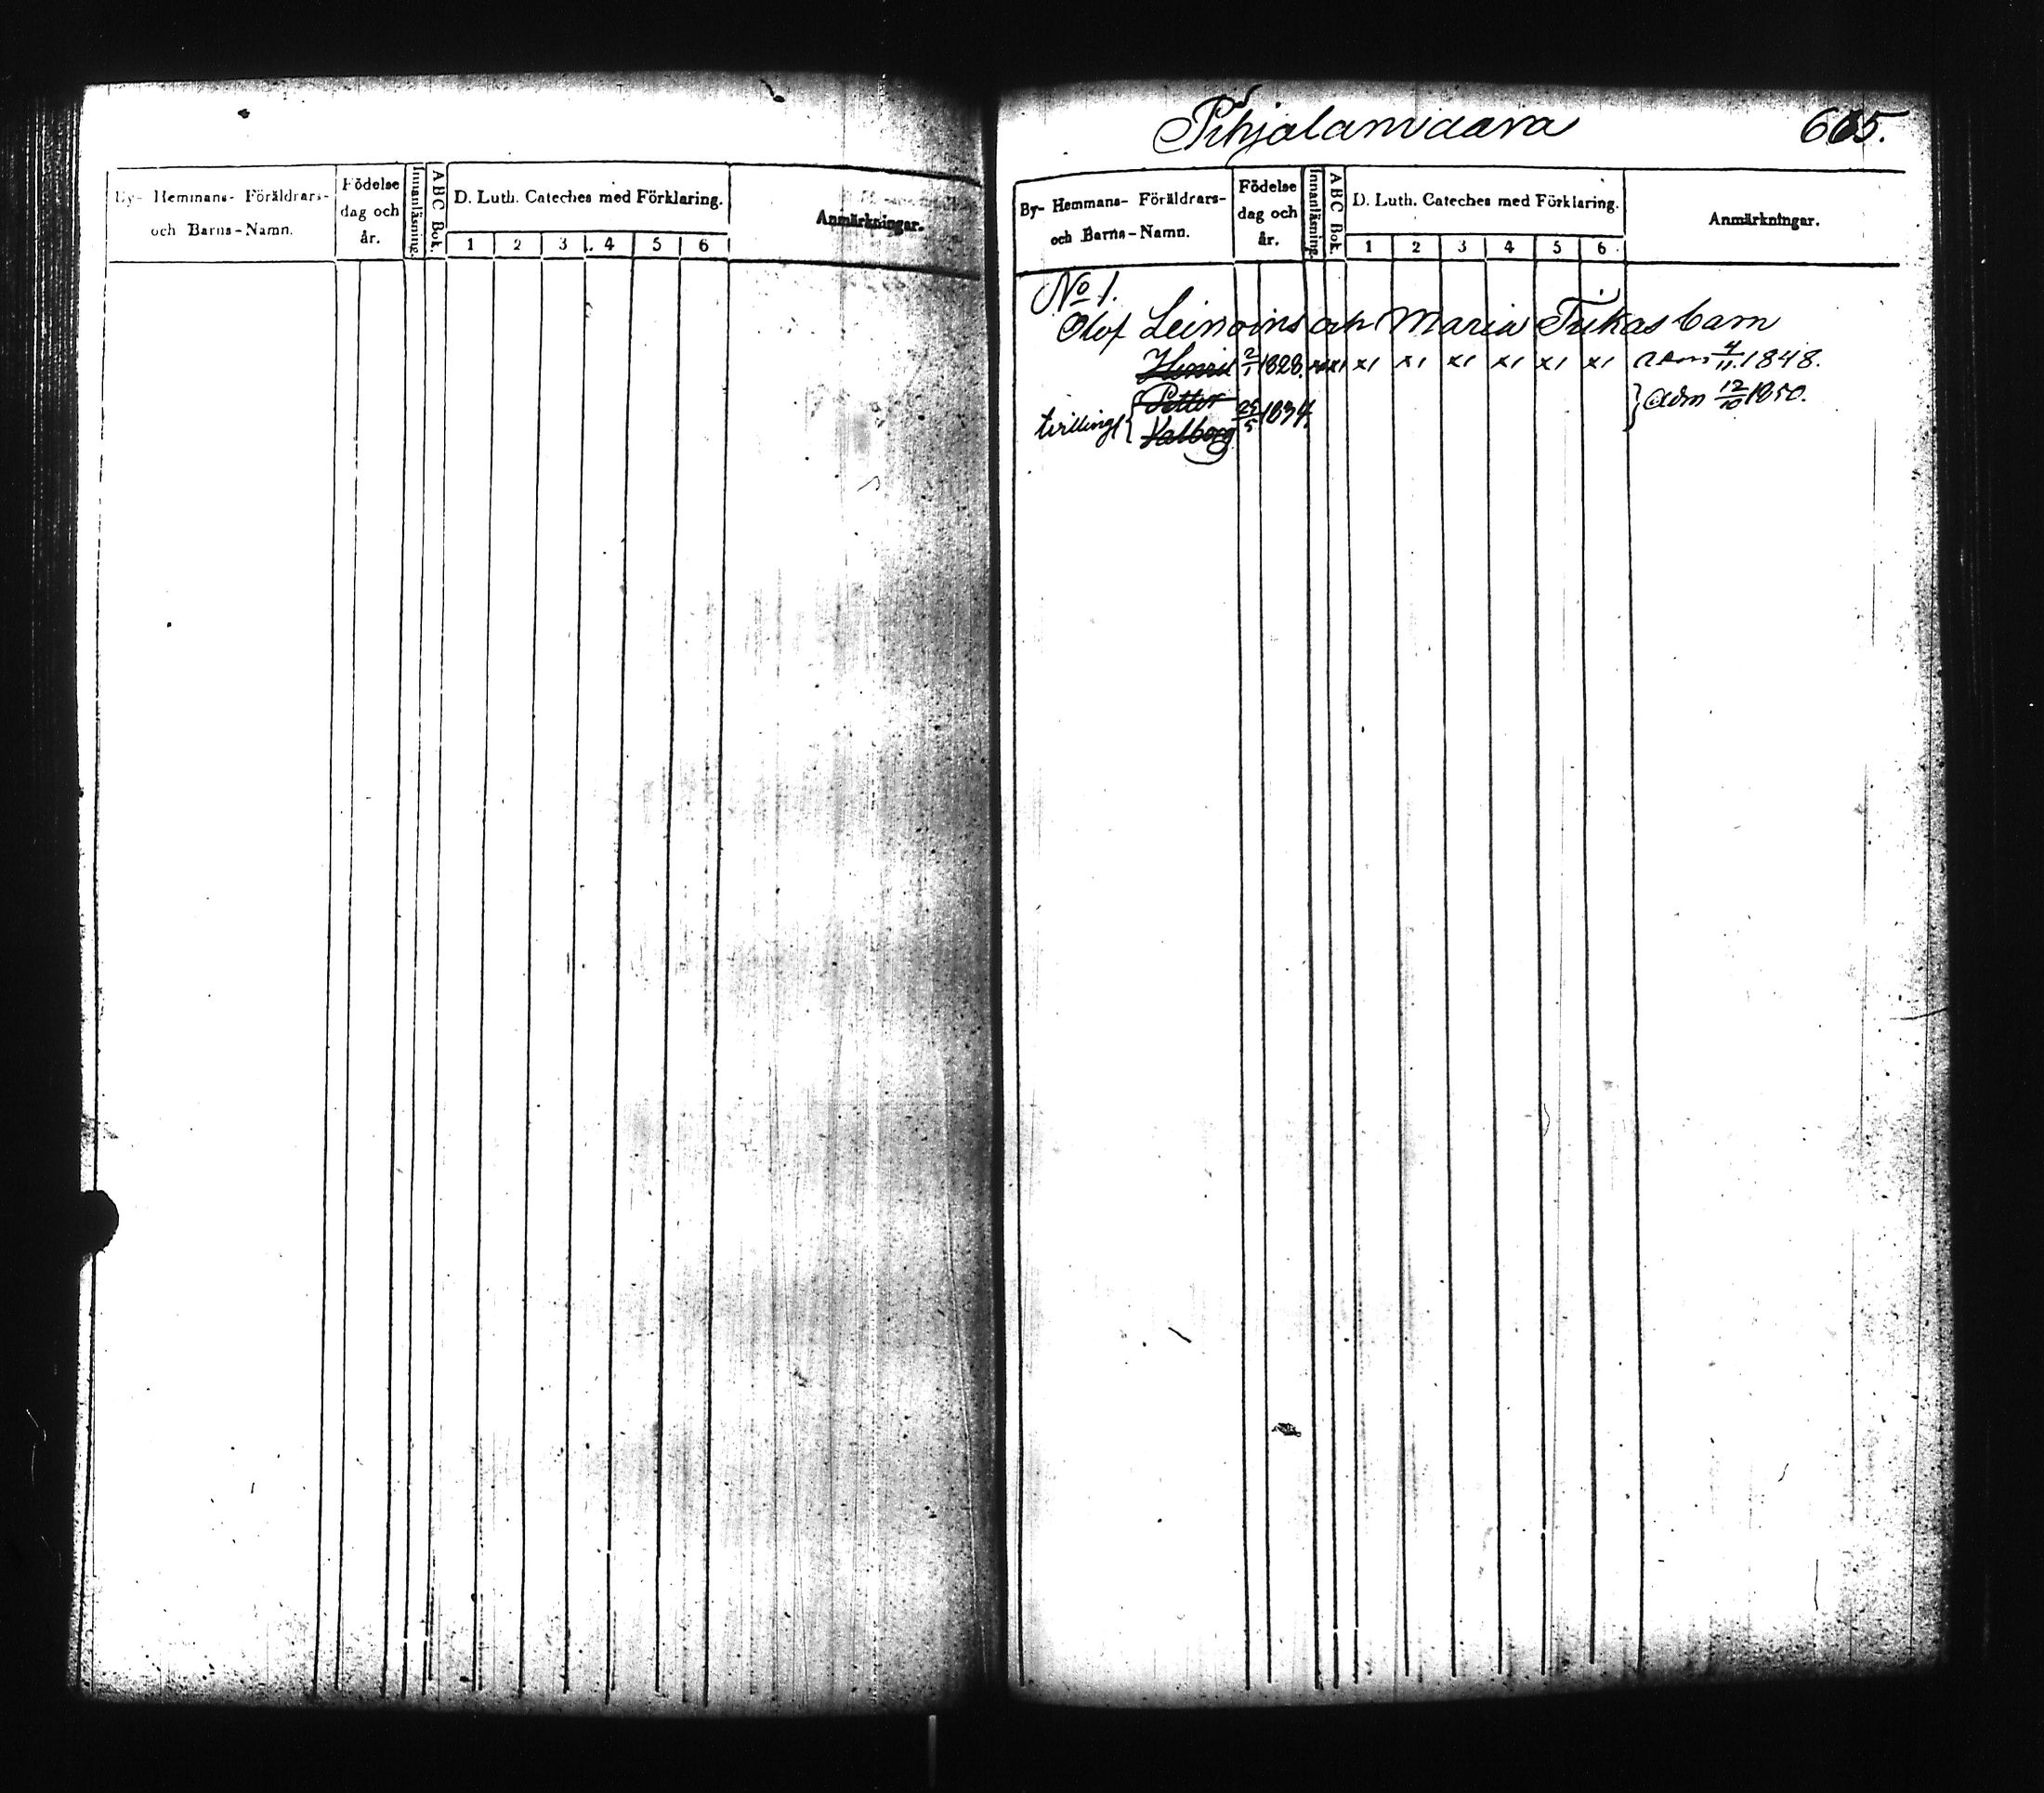 By- Hemmans- Föräldrars-
och Barns-Namn.
Födelse
dag och
år.
Innanläsning.
ABC Bok.
D. Luth. Cateches med Förklaring.
1 2 3 4 5 6
Anmärkningar.
Pihjalamvaara 665.
By- Hemmans- Föräldrars-
och Barns-Namn.
Födelse
dag och
år.
Innanläsning.
ABC Bok.
D. Luth. Cateches med Förklaring.
1 2 3 4 5 6
Anmärkningar.
No 1.
Olof Leinoins och Maria Tikas barn
Henric 2/1 1828. x1 x1 x1 x1 x1 x1 adm 4/11 1848.
Petter adm 12/10 1850.
tvilling 25/5 1834.
Valborg